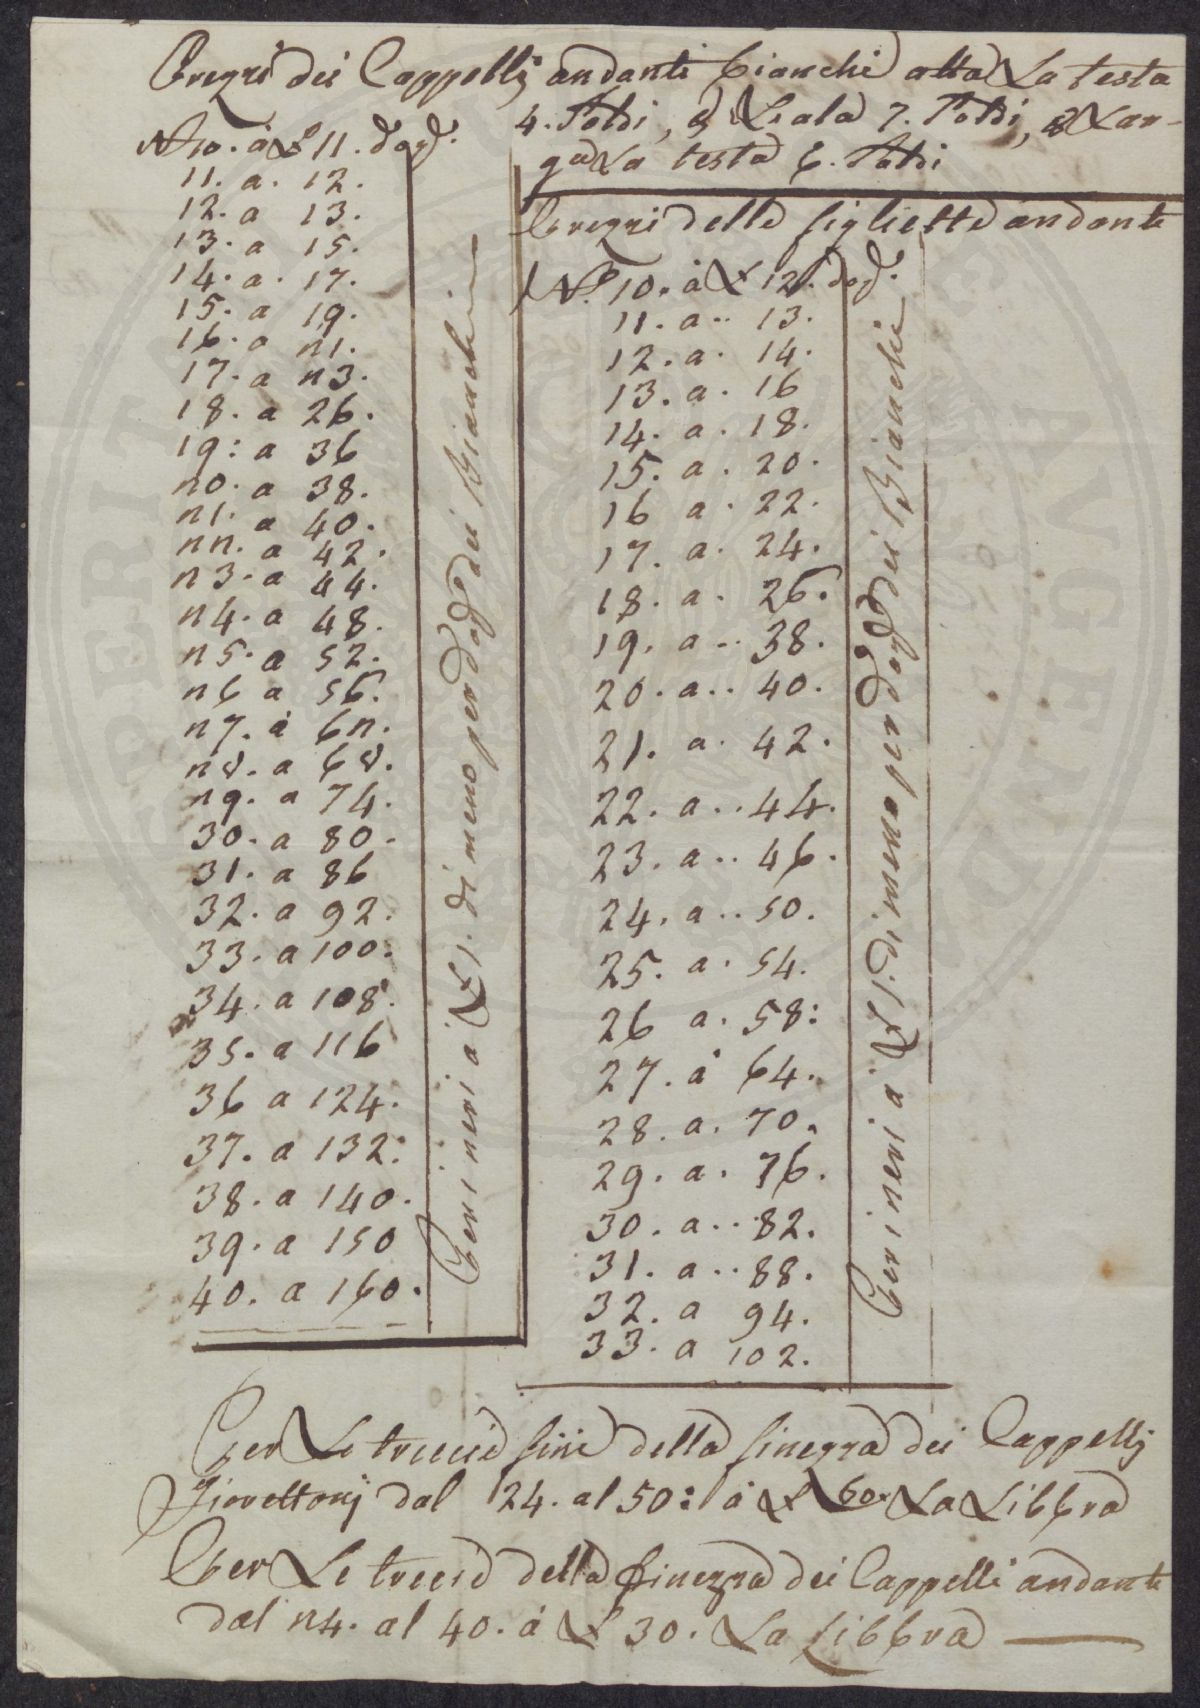 Prezzi dei Cappellj andanti bianchi alta La testa
4. Soldi, e L'ala 7. Soldi, e Lar-
ga La testa 6. Soldi
No 10. à £ 11. dozz.
11. a. 12.
12. a 13.
13. a 15.
14. a. 17.
15. a 19.
16. a n1.
17. a n3.
18. a 26.
19: a 36
n0. a 38.
n1. a 40.
nn. a 42.
n3. a 44.
n4. a 48.
n5. a 52.
n6 a 56.
n7. à 6n.
n8. a 68.
n9. a 74.
30. a 80.
31. a 86
32. a 92.
33. a 100.
34. a 108.
35. a 116
36 a 124.
37. a 132:
38. a 140.
39. a 150
40. a 160.
Per i neri a £ 1. di meno per dozz. dei Bianchi
Prezzi delle figliette andante
No. 10. à £ 12. dozz.
11. a.. 13.
12. a. 14.
13. a. 16
14. a. 18.
15. a. 20.
16 a. 22.
17. a. 24.
18. a. 26.
19. a.. 38.
20. a.. 40.
21. a. 42.
22. a.. 44.
23. a.. 46.
24. a.. 50.
25. a. 54.
26 a. 58:
27. à 64.
28. a. 70.
29. a. 76.
30. a.. 82.
31. a.. 88.
32. a 94.
33. a 102.
Per i neri à £ 1. di meno per dozz. dei Bianchi
Per Le treccie fini della finezza dei Cappellj
Fiorettonj dal 24. al 50: à £ 60. La Libbra
Per Le treccie della finezza dei Cappelli andante
dal n4. al 40. à £ 30. La Libbra
PERITATE
AVGENDA